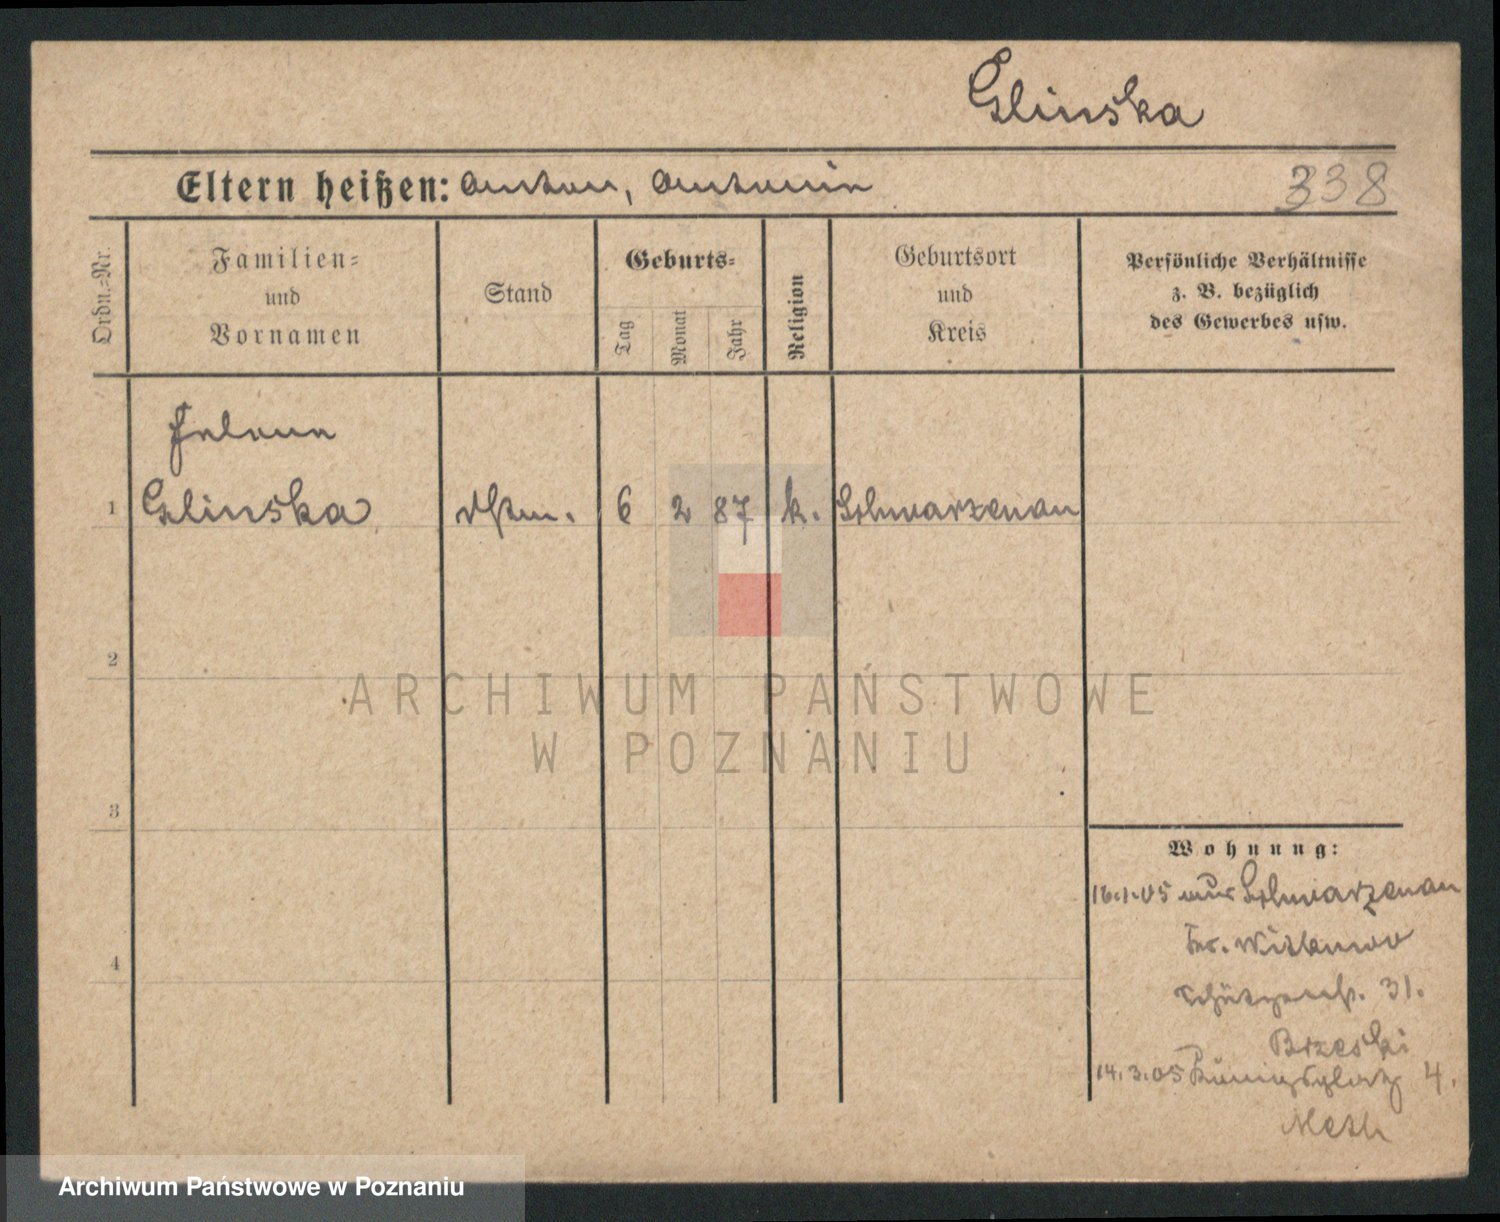 Glinska
Eltern heißen: Anton, Antonin
338
Ordn.-Nr.
Familien-
und
Vornamen
Stand
Geburts-
Tag
Monat
Jahr
Religion
Geburtsort
und
Kreis
Persönliche Verhältnisse
z. B. bezüglich
des Gewerbes usw.
Helena
1 Glinska Dstm. 6 2 87 k. Schwarzenau
2
ARCHIWUM PAŃSTWOWE
W POZNANIU
3
Wohnung:
16.1.05 aus Schwarzenau
Kr. Witkowo
4
Schützenstr. 31.
Brzeski
14.3.05 Königsplatz 4.
Archiwum Państwowe w Poznaniu